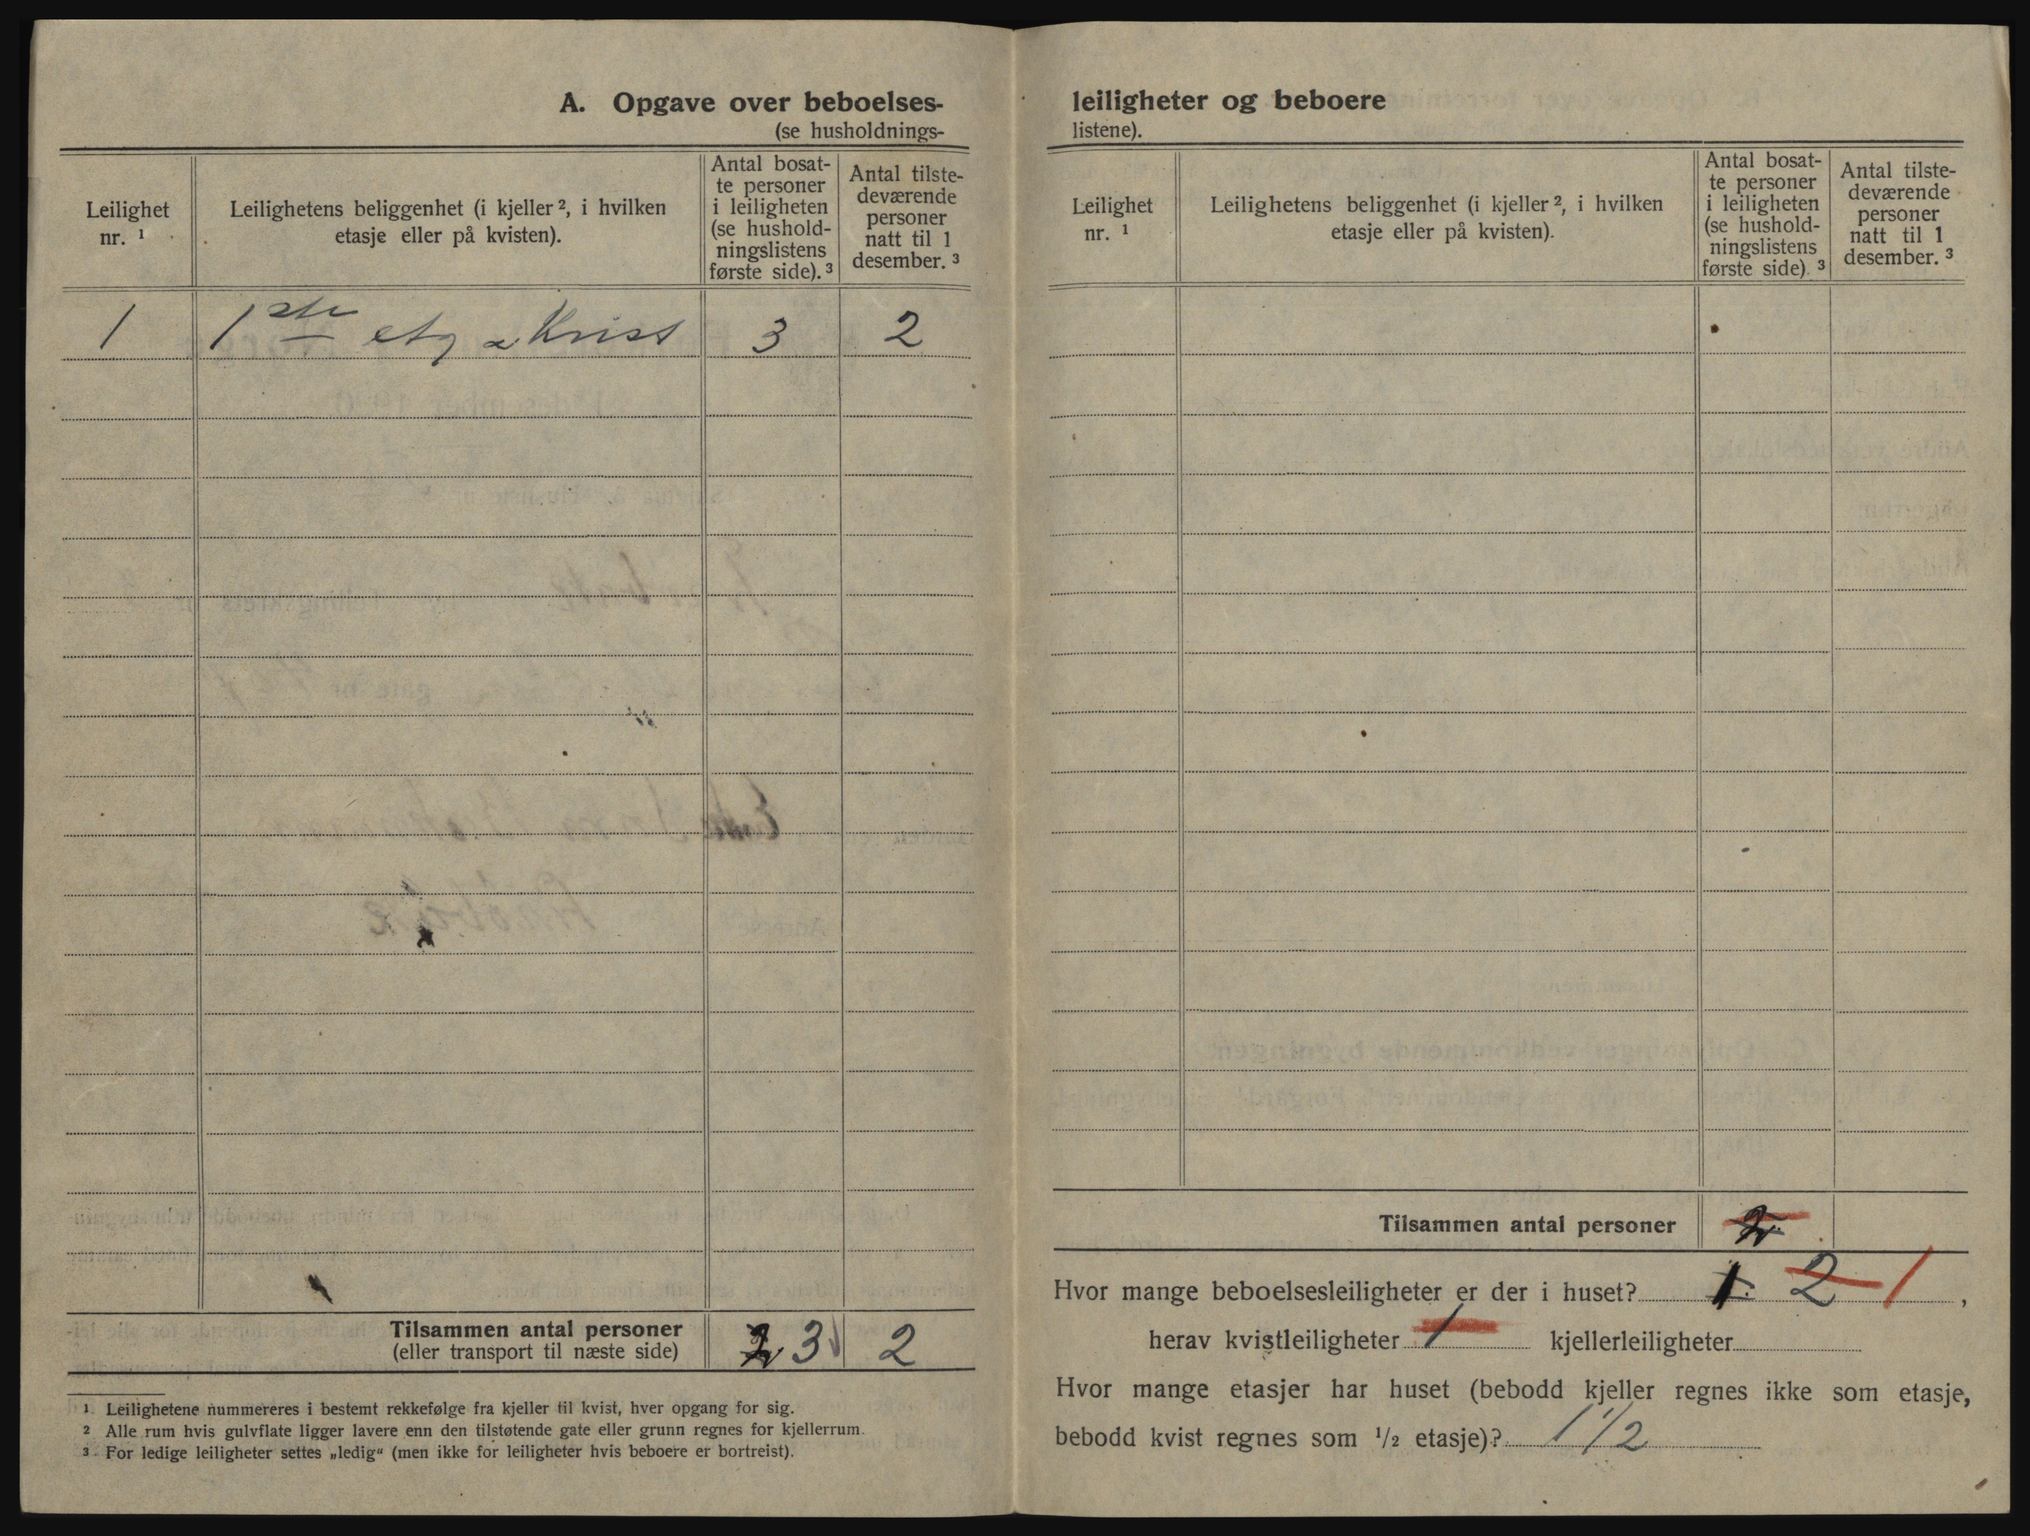 A. Opgave over beboelses-
(se husholdnings-
Leilighet
nr. ¹
Leilighetens beliggenhet (i kjeller ², i hvilken
etasje eller på kvisten).
Antal bosat-
te personer
i leiligheten
(se hushold-
ningslistens
første side). ³
Antal tilste-
deværende
personer
natt til 1
desember. ³
1 1ste etg & Kvist 3 2
Tilsammen antal personer
(eller transport til næste side)
2 3 2
¹ Leilighetene nummereres i bestemt rekkefølge fra kjeller til kvist, hver opgang for sig.
² Alle rum hvis gulvflate ligger lavere enn den tilstøtende gate eller grunn regnes for kjellerrum.
³ For ledige leiligheter settes „ledig“ (men ikke for leiligheter hvis beboere er bortreist).
leiligheter og beboere
listene).
Leilighet
nr. ¹
Leilighetens beliggenhet (i kjeller ², i hvilken
etasje eller på kvisten).
Antal bosat-
te personer
i leiligheten
(se hushold-
ningslistens
første side). ³
Antal tilste-
deværende
personer
natt til 1
desember. ³
Tilsammen antal personer 2
Hvor mange beboelsesleiligheter er der i huset? 1 2 1,
herav kvistleiligheter 1 kjellerleiligheter
Hvor mange etasjer har huset (bebodd kjeller regnes ikke som etasje,
bebodd kvist regnes som ½ etasje)? 1 1/2